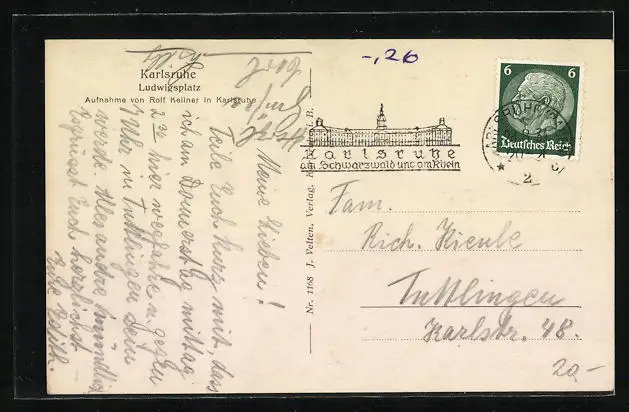 Karlsruhe
Ludwigsplatz
Aufnahme von Rolf Kellner in Karlsruhe
Meine Lieben!
Teile Euch kurz mit, dass
ich am Donnerstag mittag
2 30 hier wegfahre u. gegen
7 Uhr in Tuttlingen sein
werde. Alles andre mündlich
Euch herzlichst
Eure
Nr. 1168 J. Velten, Verlag, i. B.
-,26
Karlsruhe
am Schwarzwald und am Rhein
6 6
Deutsches Reich
KARLSRUHE
2
Fam.
Rich. Kienle
Tuttlingen
Karlstr. 48.
20-